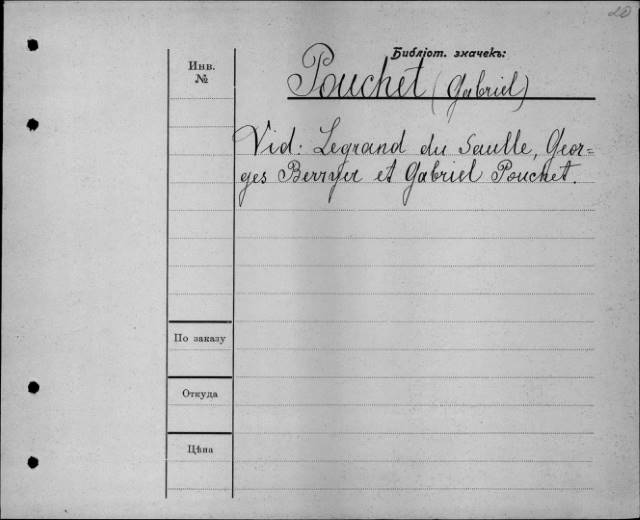 20
Библiот. значекъ:
Инв.
№
Pouchet (Gabriel)
Vid: Legrand du Saulle, Geor=
ges Berryer et Gabriel Pouchet.
По заказу
Откуда
Цѣна